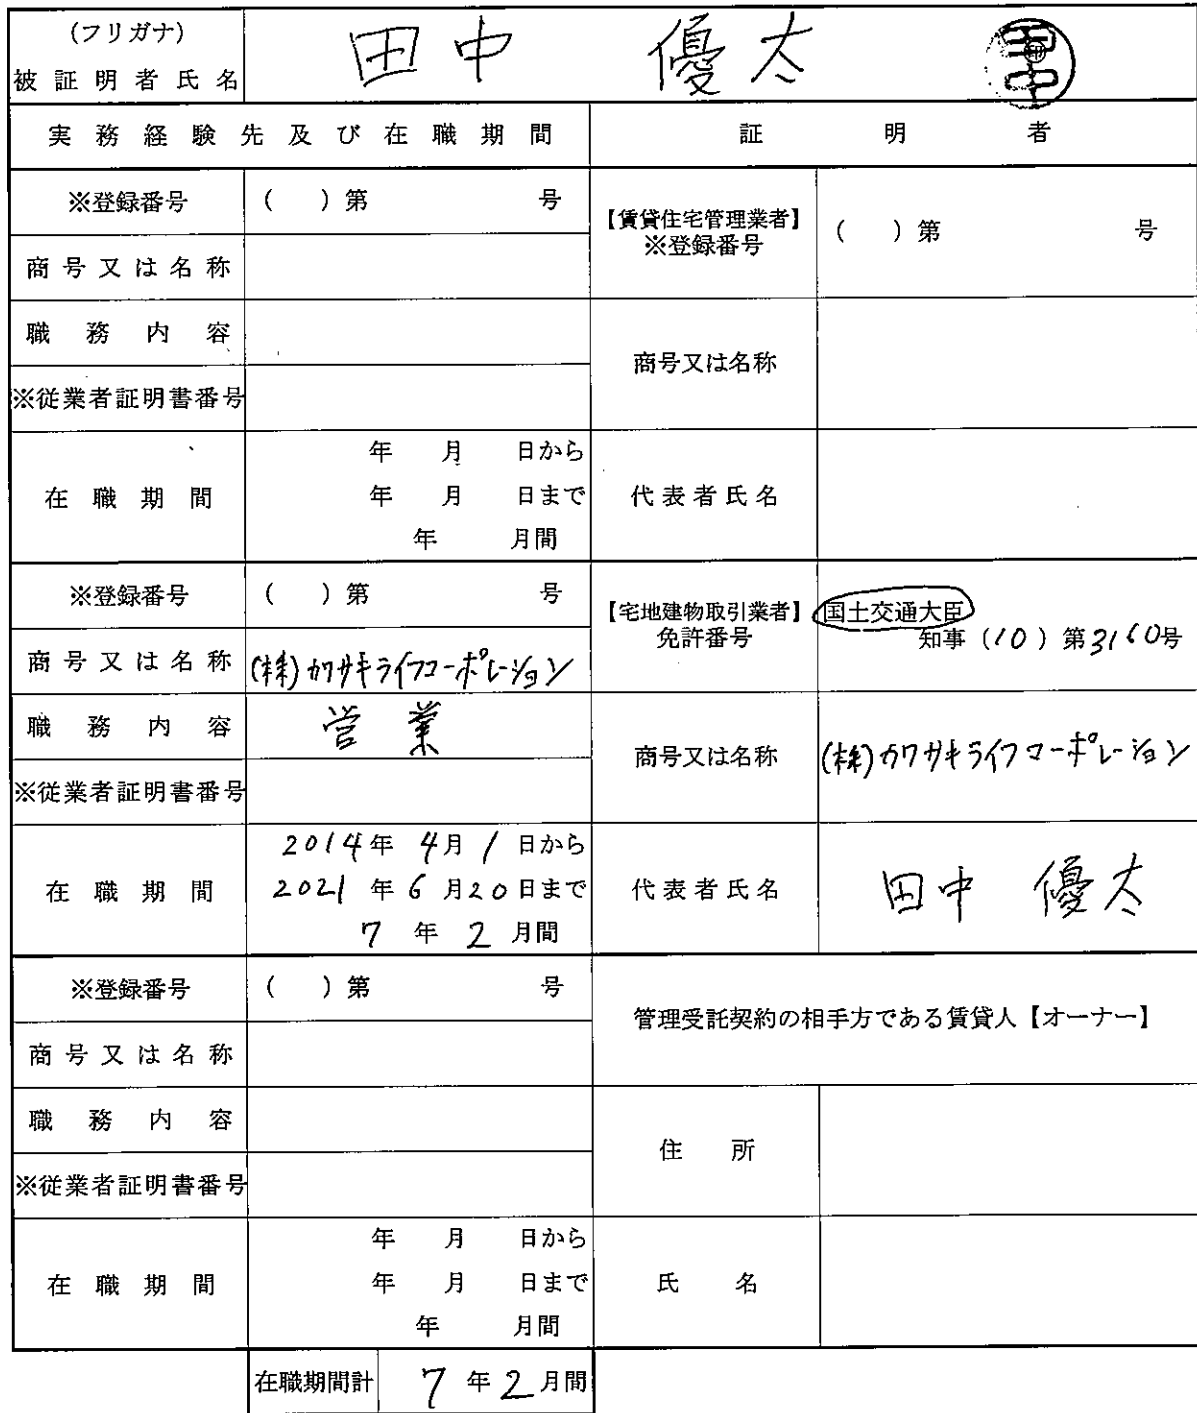 (フリガナ)
被証明者氏名 田中 優太 田中 印
実務経験先及び在職期間 証明者
※登録番号 ( )第 号
【賃貸住宅管理業者】
※登録番号 ( )第 号
商号又は名称
職務内容
商号又は名称
※従業者証明書番号
在職期間
年 月 日から
年 月 日まで
年 月間
代表者氏名
※登録番号 ( )第 号
【宅地建物取引業者】
免許番号
国土交通大臣
知事(10)第3160号
商号又は名称 (株)カワサキライフコーポレーション
職務内容 営業
商号又は名称 (株)カワサキライフコーポレーション
※従業者証明書番号
在職期間
2014年 4月 1日から
2021年 6月20日まで
7年 2月間
代表者氏名 田中 優太
※登録番号 ( )第 号
管理受託契約の相手方である賃貸人【オーナー】
商号又は名称
職務内容
住所
※従業者証明書番号
在職期間
年 月 日から
年 月 日まで
年 月間
氏名
在職期間計 7年2月間